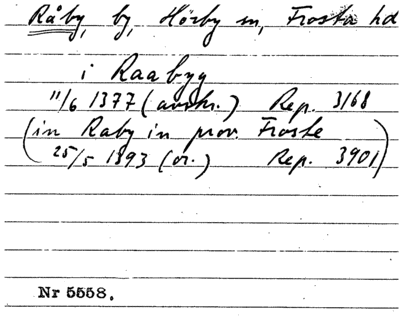 Råby, by, Hörby sn, Frosta hd
i Raabyg
11/6 1377 (avskr.) Rep. 3168
(in Raby in prov. Froste
25/5 1393 (or.) Rep. 3901)
Nr 5558.